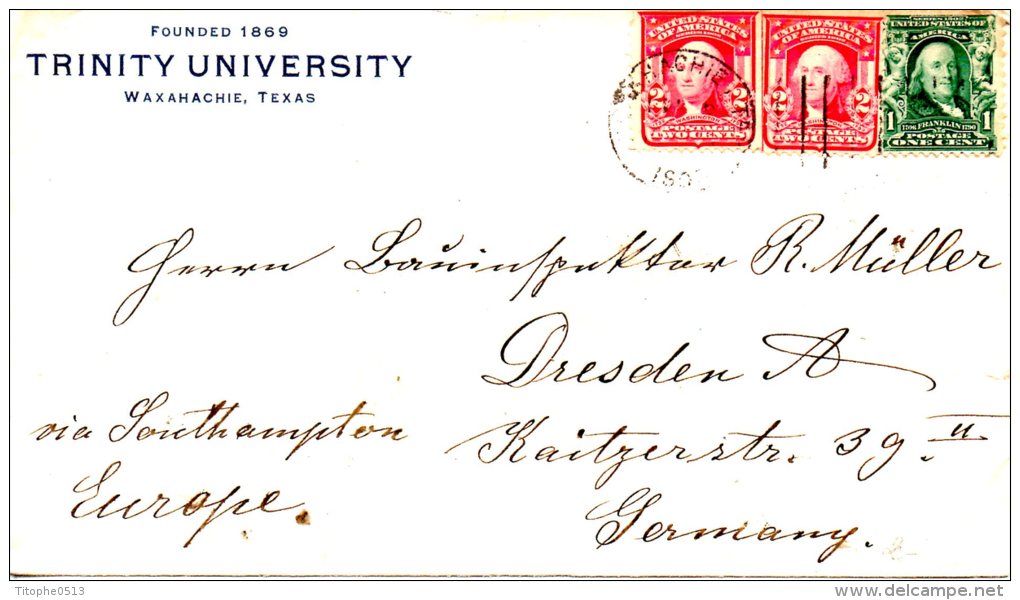 FOUNDED 1869
TRINITY UNIVERSITY
WAXAHACHIE, TEXAS
UNITED STATES
OF AMERICA
SERIES 1902
2 2
WASHINGTON
POSTAGE
TWO CENTS
UNITED STATES
OF AMERICA
SERIES 1902
2 2
WASHINGTON
POSTAGE
TWO CENTS
SERIES 1902
UNITED STATES OF
AMERICA
1 1
1706 FRANKLIN 1790
POSTAGE
ONE CENT
Herrn Bauinspektor R. Müller
Dresden A
Kaitzerstr. 39. II
Germany.
via Southampton
Europe.
Titophe0513
www.delcampe.net